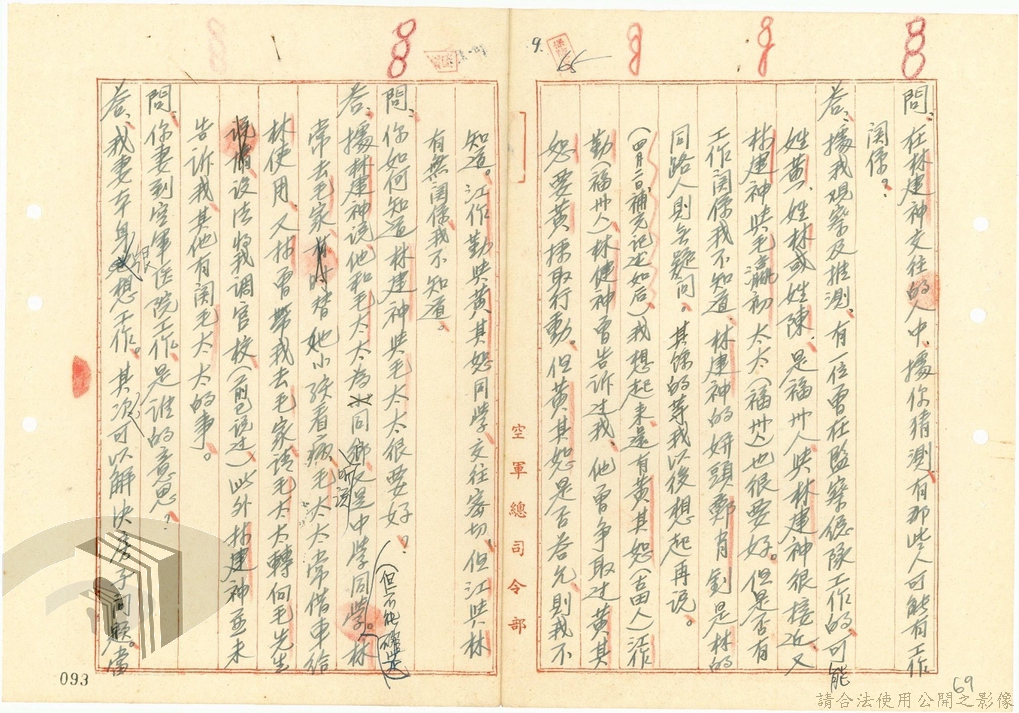 問：在林建神交往的人中，據你猜測，有那些人可能有工作
関係？
答：據我观察及推測，有一位曾在監察總隊工作的，可能
姓黃、姓林或姓陳，是福州人，與林建神很接近，又
林建神與毛瀛初太太（福州人）也很要好。但是否有
工作関係我不知道，林建神的姘頭鄭肖釗是林的
同路人則無疑问。其餘的等我以後想起再説。
（四月二日補充记述如后）我想起来還有黃其恕（古田人）江作
勤（福州人）林健神曾告诉过我，他曾争取过黃其
恕，要黃採取行動，但黃其恕是否答允，則我不
空軍總司令部
知道。江作勤與黃其恕同學，交往密切，但江與林
有無関係我不知道。
問：你如何知道林建神與毛太太很要好？
答：據林建神说，他和毛太太為同鄉，又是中学同學。（但不能確定）林
常去毛家，時替她小孩看病，毛太太常借車给
林使用，又林曾帶我去毛家，请毛太太轉向毛先生
设法將我调官校（前已说过）此外林建神並未
告訴我其他有関毛太太的事。
問：你妻到空軍医院工作，是谁的意思？
答：我妻本身很想工作。其次可以解决房子问题。當
093
69
65
9.
請合法使用公開之影像